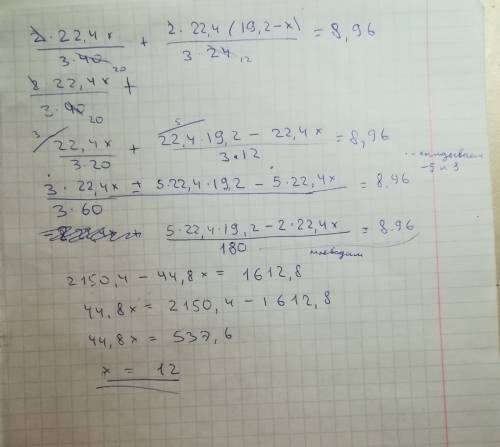 2 · 22,4x / 3 · 40 20 + 2 · 22,4 (19,2 – x) / 3 · 24 12 = 8,96
2 22,4x / 3 · 40 20 +
3/ 22,4x / 3 · 20 + 5/ 22,4 · 19,2 – 22,4x / 3 · 12 = 8,96
3 · 22,4x + 5 · 22,4 · 19,2 – 5 · 22,4x / 3 · 60 = 8.96
5 · 22,4 · 19,2 – 2 · 22,4x / 180 = 8.96
2150,4 – 44,8x = 1612,8
44,8x = 2150,4 – 1612,8
44,8x = 537,6
x = 12